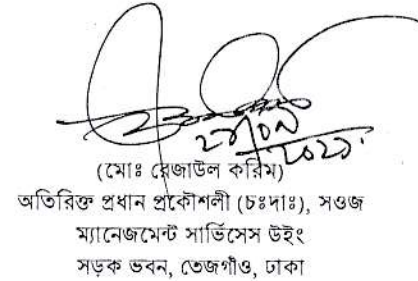 (মোঃ রেজাউল করিম)
অতিরিক্ত প্রধান প্রকৌশলী (চঃদাঃ), সওজ
ম্যানেজমেন্ট সার্ভিসেস উইং
সড়ক ভবন, তেজগাঁও, ঢাকা